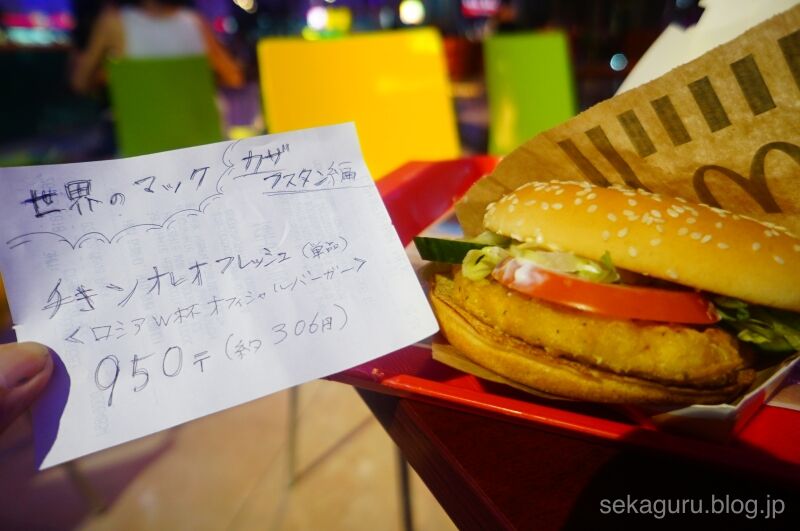 世界のマック カザフスタン編
チキンオレオフレッシュ(単品)
<ロシアW杯オフィシャルバーガー>
950〒(約306円)
sekaguru.blog.jp